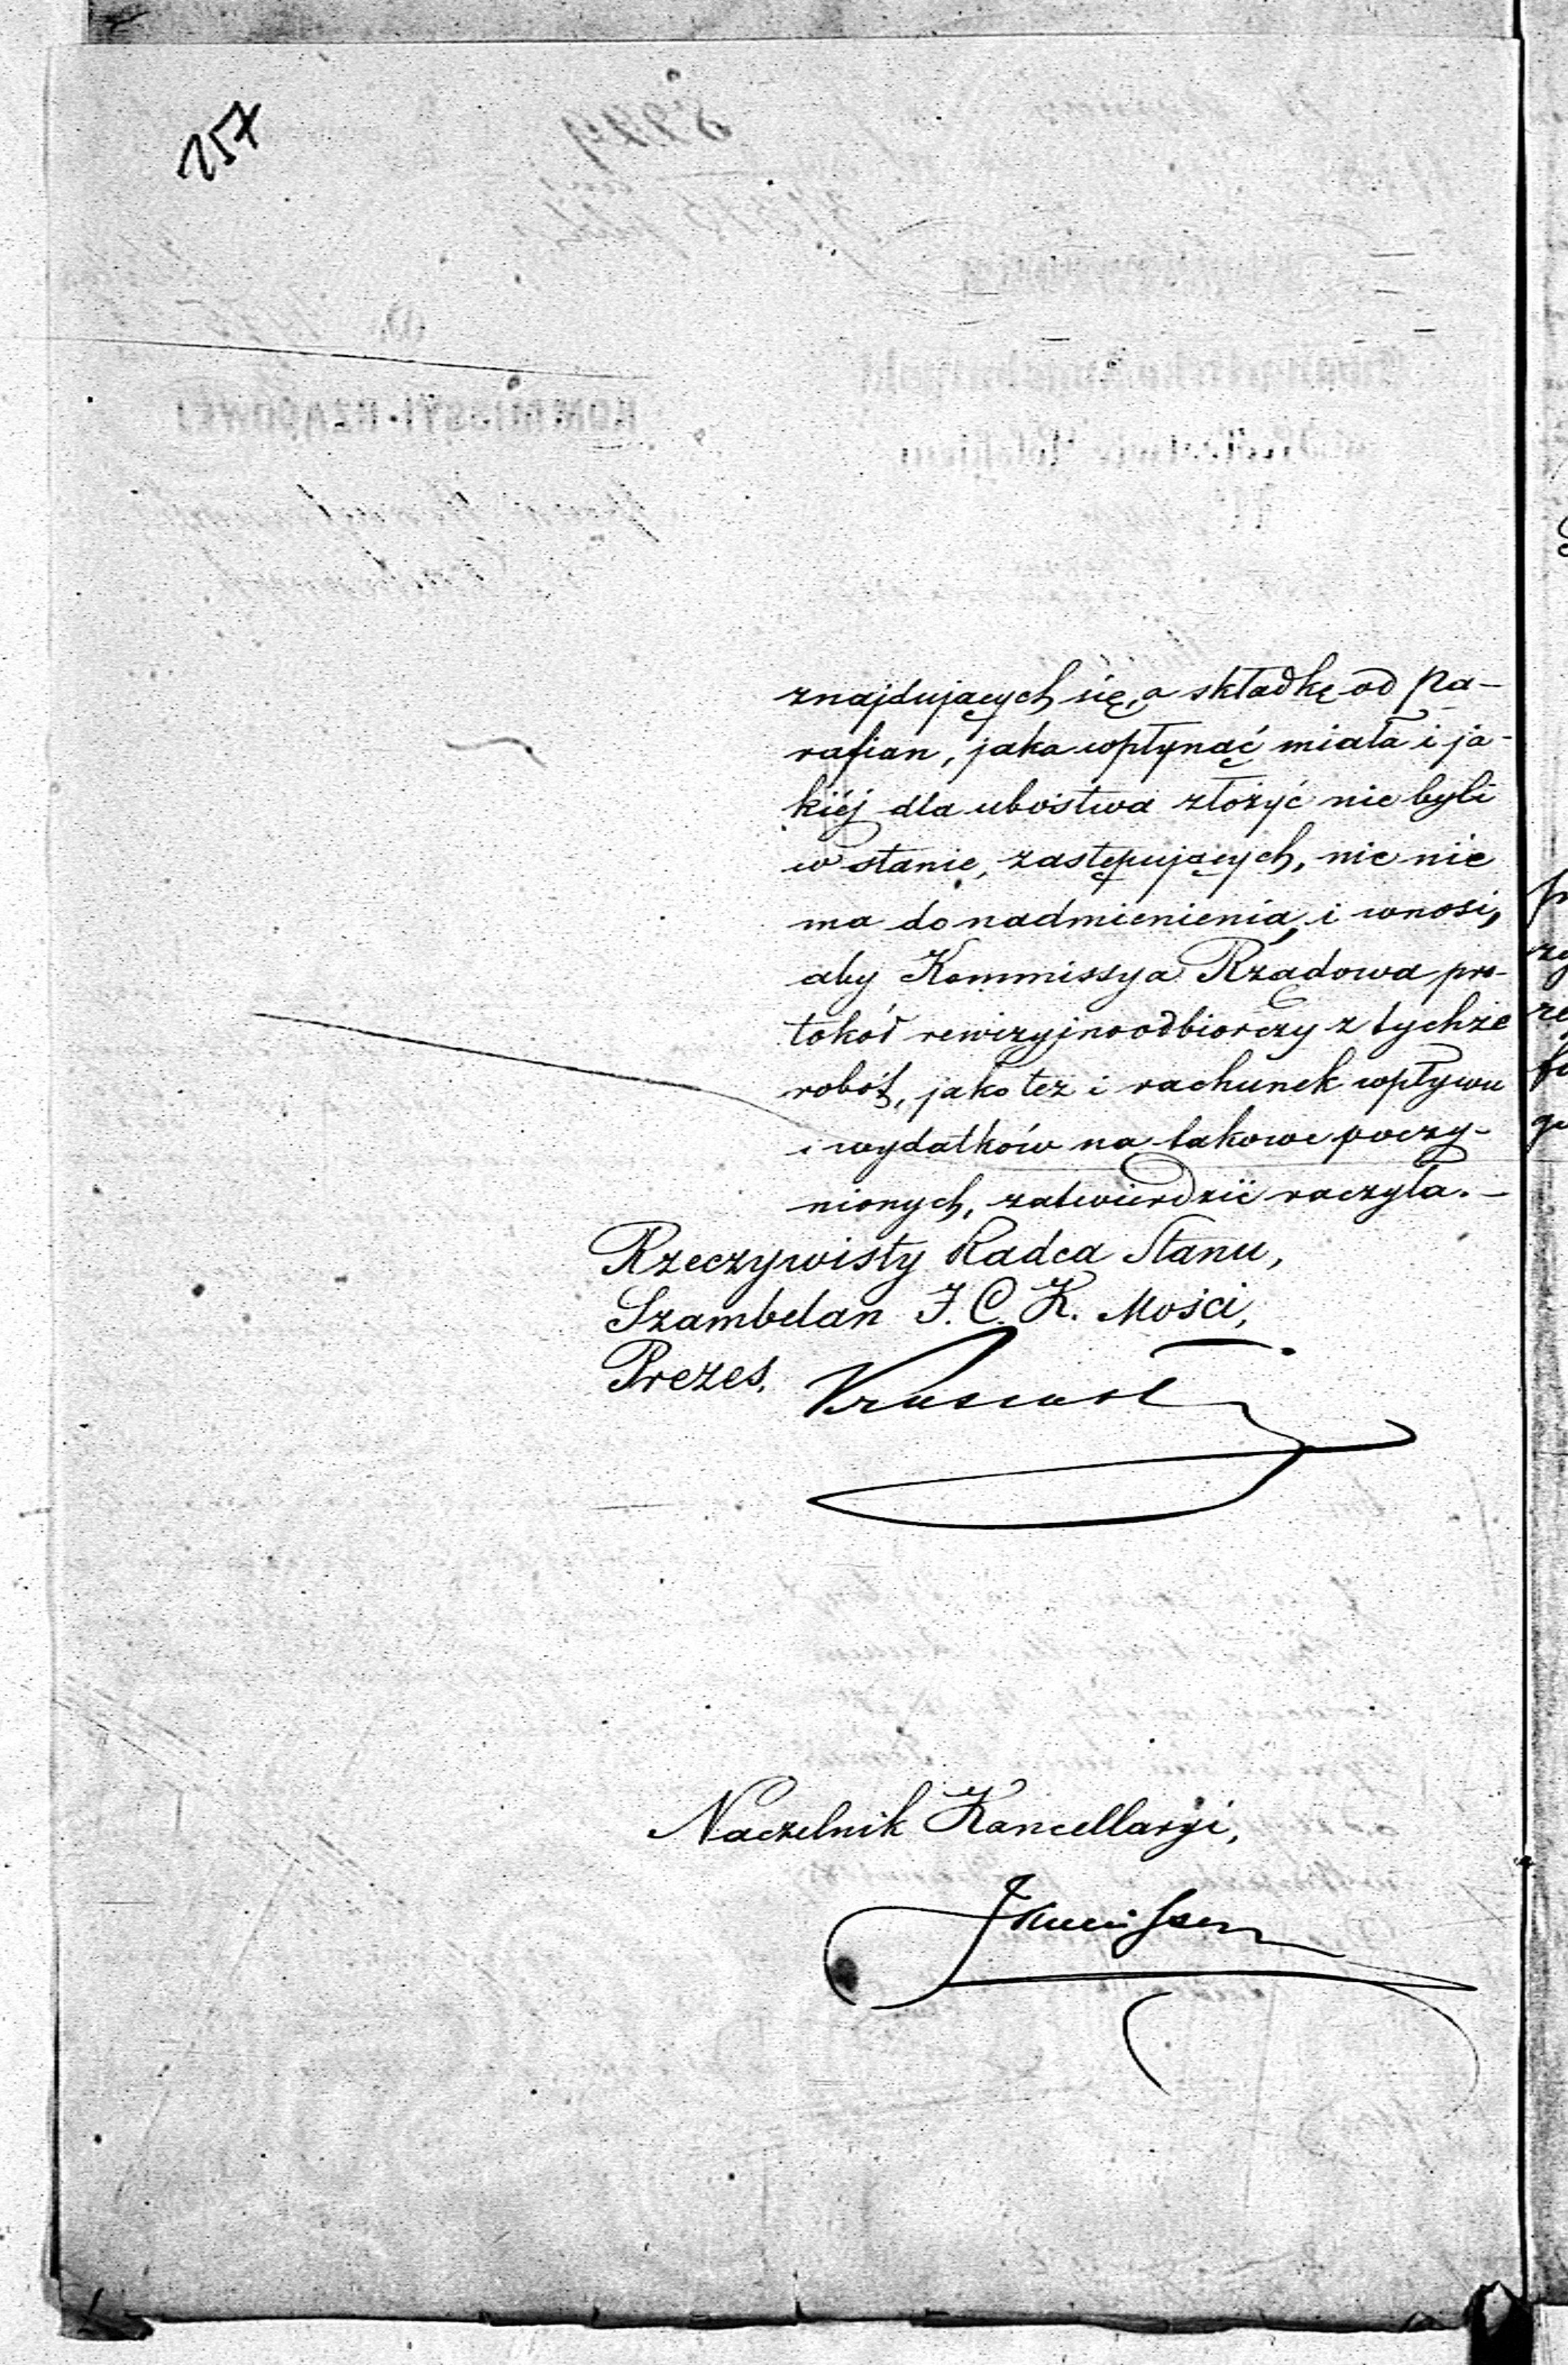 257
znajdujących się, a składkę od pa-
rafian, jaka wpłynąć miała i ja-
kiéj dla ubóstwa złożyć nie byli
w stanie, zastępujących, nic nie
ma do nadmienienia, i wnosi,
aby Kommissya Rządowa pro-
tokół rewizyjnoodbiorczy z tychże
robót, jako też i rachunek wpływu
i wydatków na takowe poczy-
nionych, zatwierdzić raczyła.-
Rzeczywisty Radca Stanu,
Szambelan J. C. K. Mości,
Prezes,
Naczelnik Kancellaryi,